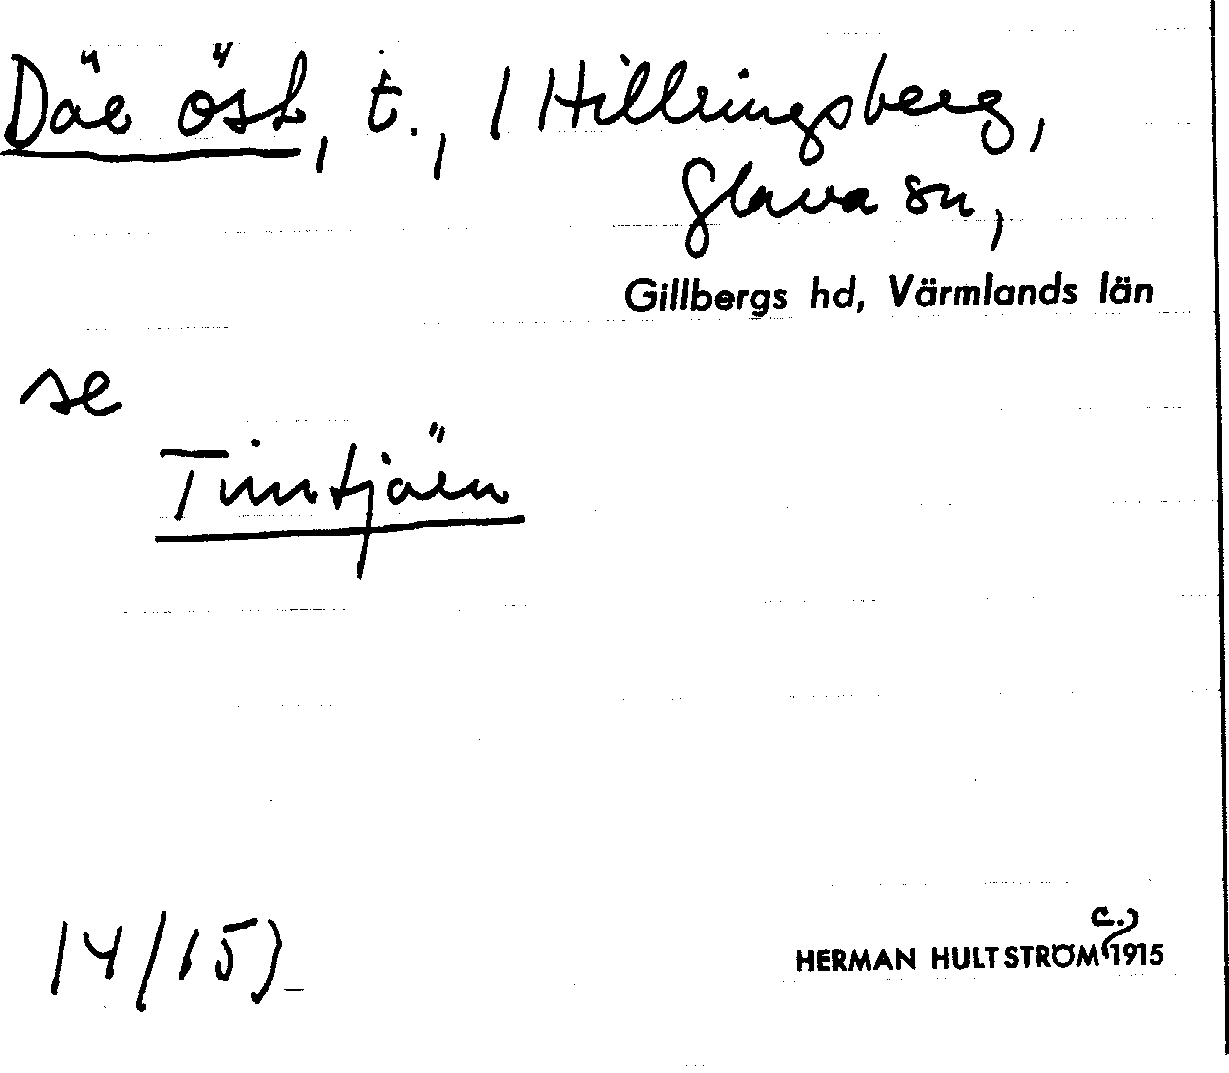 Däe öst, t., / Hillringsberg,
Glava sn,
Gillbergs hd, Värmlands län
se
Timtjärn
14/15)
HERMAN HULTSTRÖM c. 1915